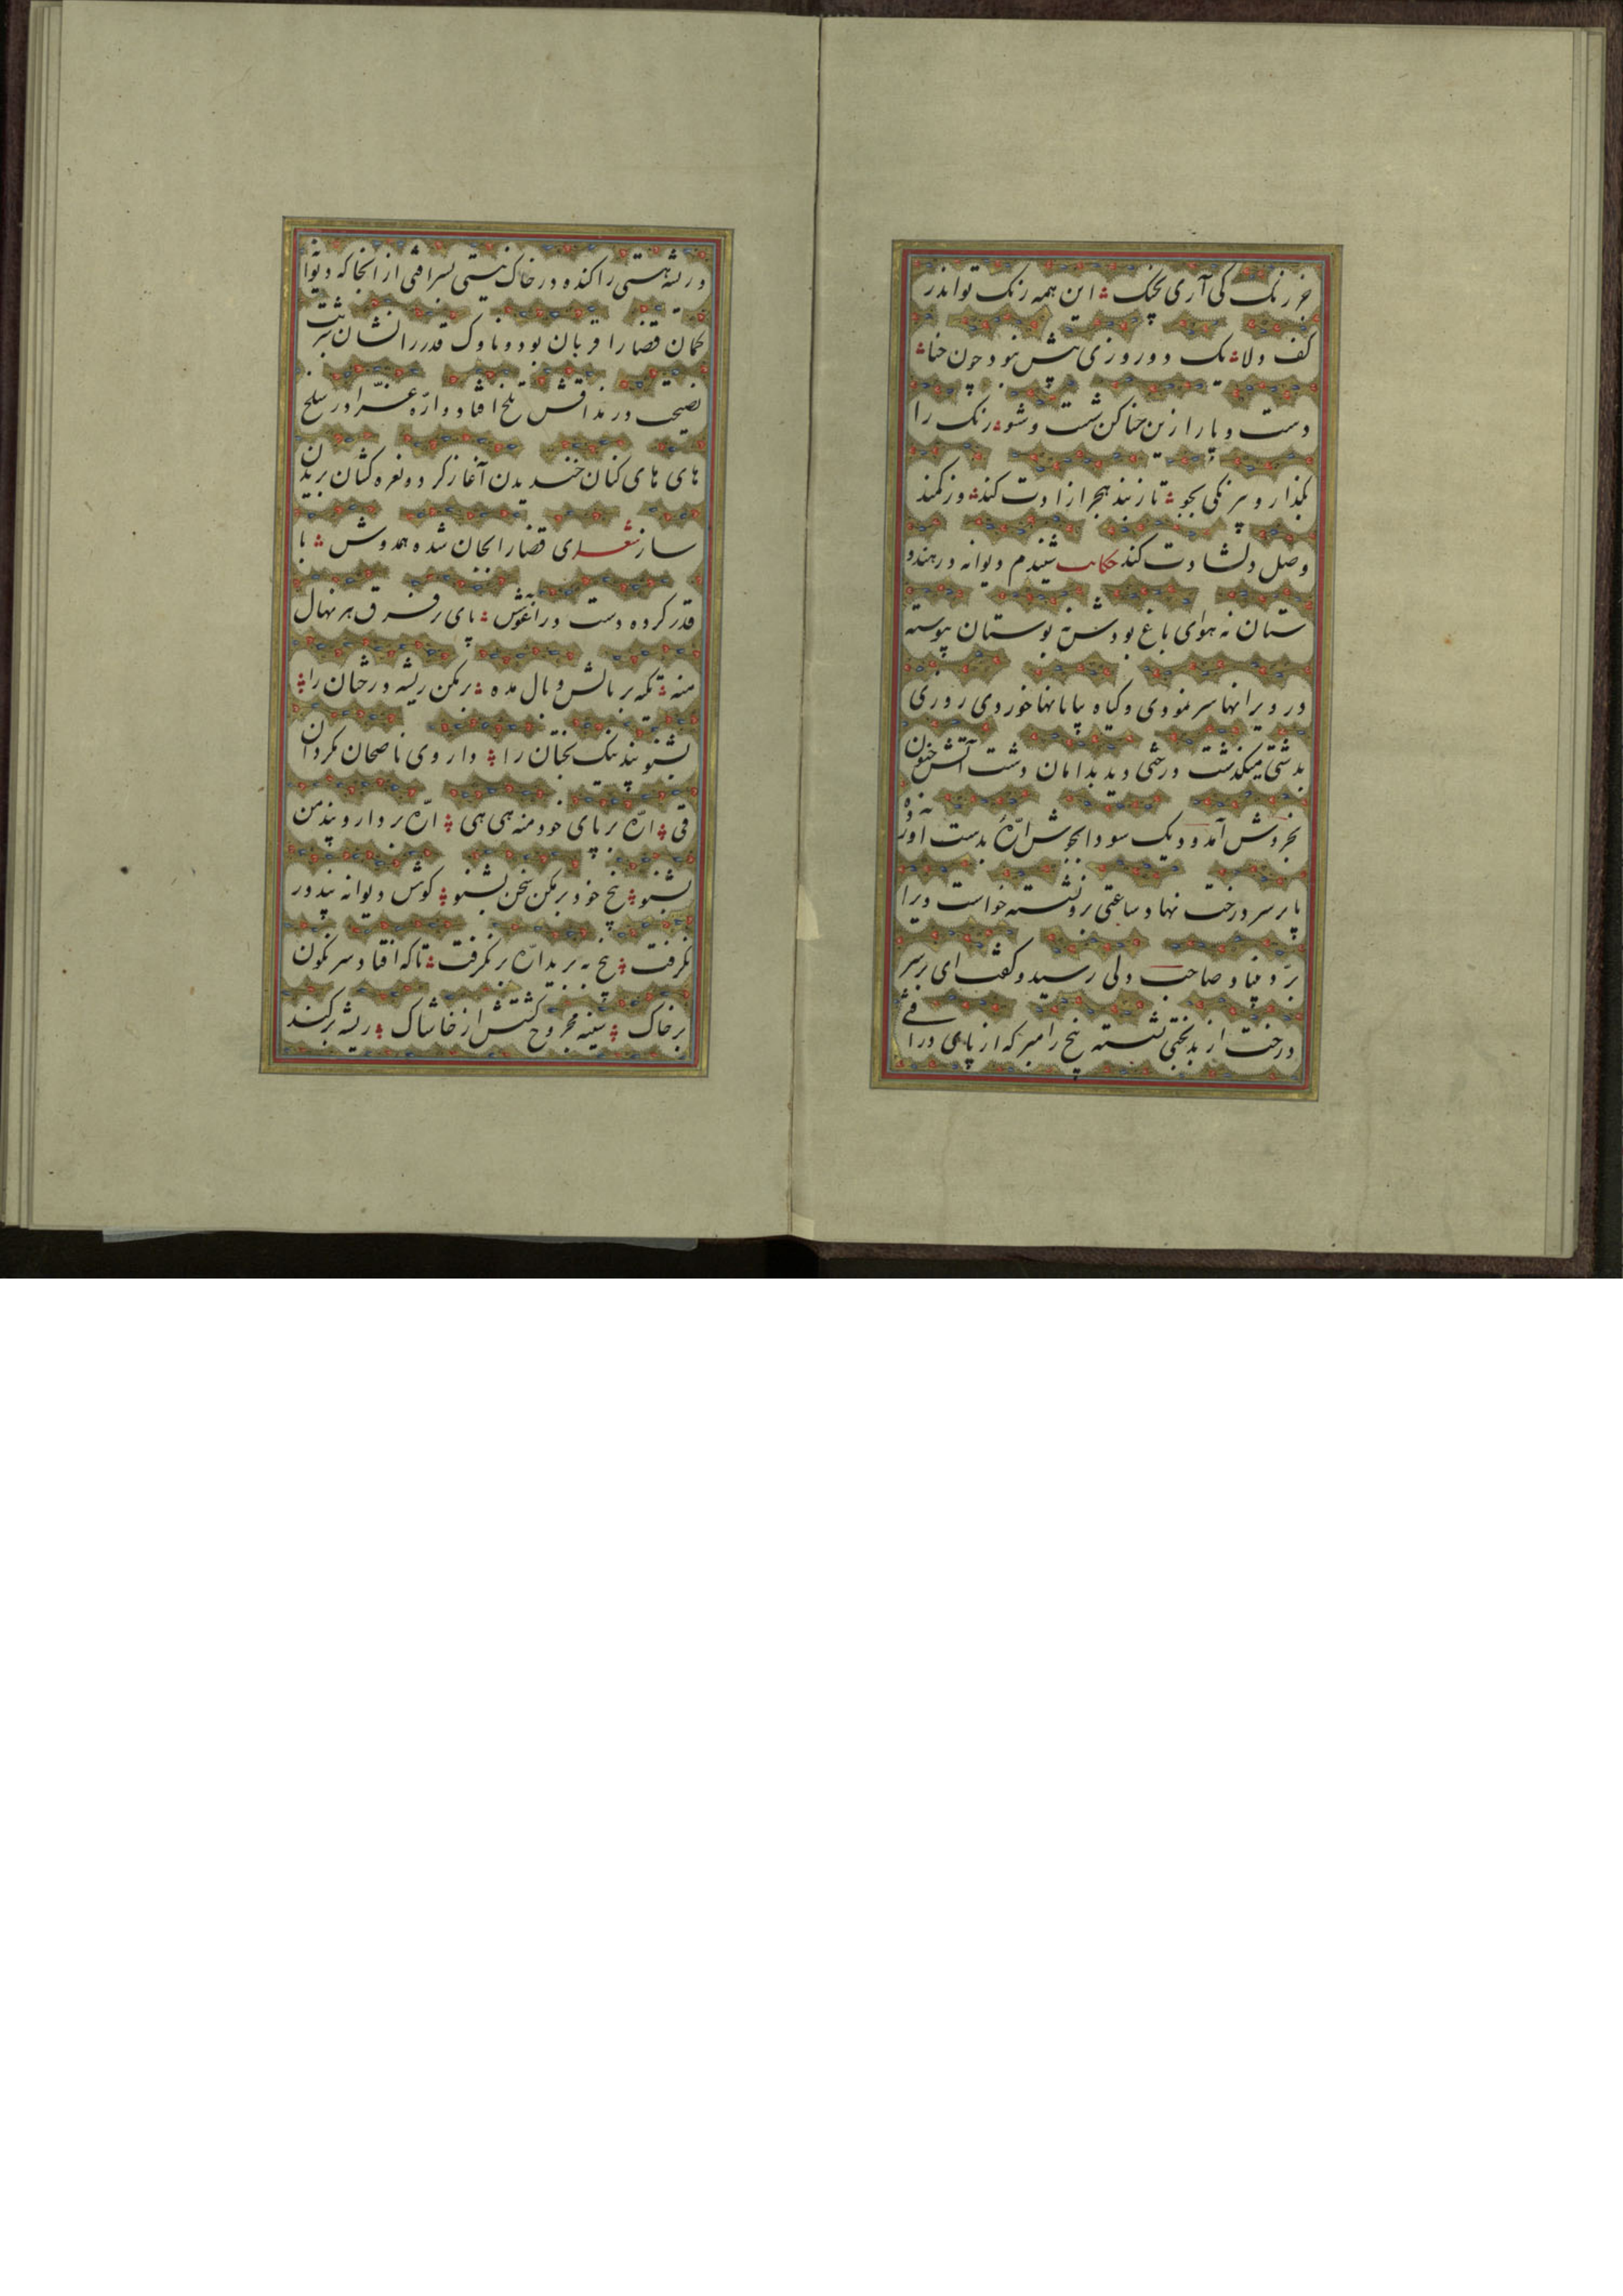 خر رنک کی آری بچنک ؞ این همه رنک تو اندر
کف و لا ؞ یک دو روزی پیش نبود چون حنا ؞
دست و پا را ازین حنا کن شست و شو ؞ رنک را
بگذار و بیرنکی بجو ؞ تا ز بند هجر ازادت کند ؞ وز کمند
وصل دلشادت کند حکایت شنیدم دیوانه در هندو
ستان نه هوای باغ بودش نه بوستان پیوسته
در ویرانها سر نمودی و گیاه بیابانها خوردی روزی
بدشتی میکذشت درختی دید بدامان دشت آتش جنون
بخروش آمد و دیک سودا بجوش ارّهٔ بدست اورده
پا بر سر درخت نهاد و ساعتی برو نشسته خواست ویرا
برد بنیاد صاحب دلی رسید و کفت ای بر سر
درخت از بدبختی نشسته بیخ را مبر که از پای در افتی
و ریشه هستی را کنده در خاک نیستی بسر افتی از انجا که دیوانه
کمان قضا را قربان بود و ناوک قدر را نشان شربت
نصیحت در مذاقش تلخ افتاد و ارّه عزا در بیلخ
های های کنان خندیدن آغاز کرد و نعره کشان بریدن
ساز شعر ای قضا را بجان شده همدوش ؞ با
قدر کرده دست در اغوش ؞ پای بر فرق هر نهال
منه ؞ تکیه بر بالش و بال مده ؞ برمکن ریشه درختان را ؞
بشنو پند نیک بختان را ؞ داروی ناصحان مکردان
قی ؞ ارّه بر پای خود منه هی هی ؞ ارّه بردار و پند من
بشنو ؞ بیخ خود برمکن سخن بشنو ؞ کوش دیوانه پند در
نکرفت ؞ بیخ ببرید ارّه بر نکرفت ؞ تا که افتاد سرنکون
بر خاک ؞ سینه مجروح کشتش از خاشاک ؞ ریشه برکند